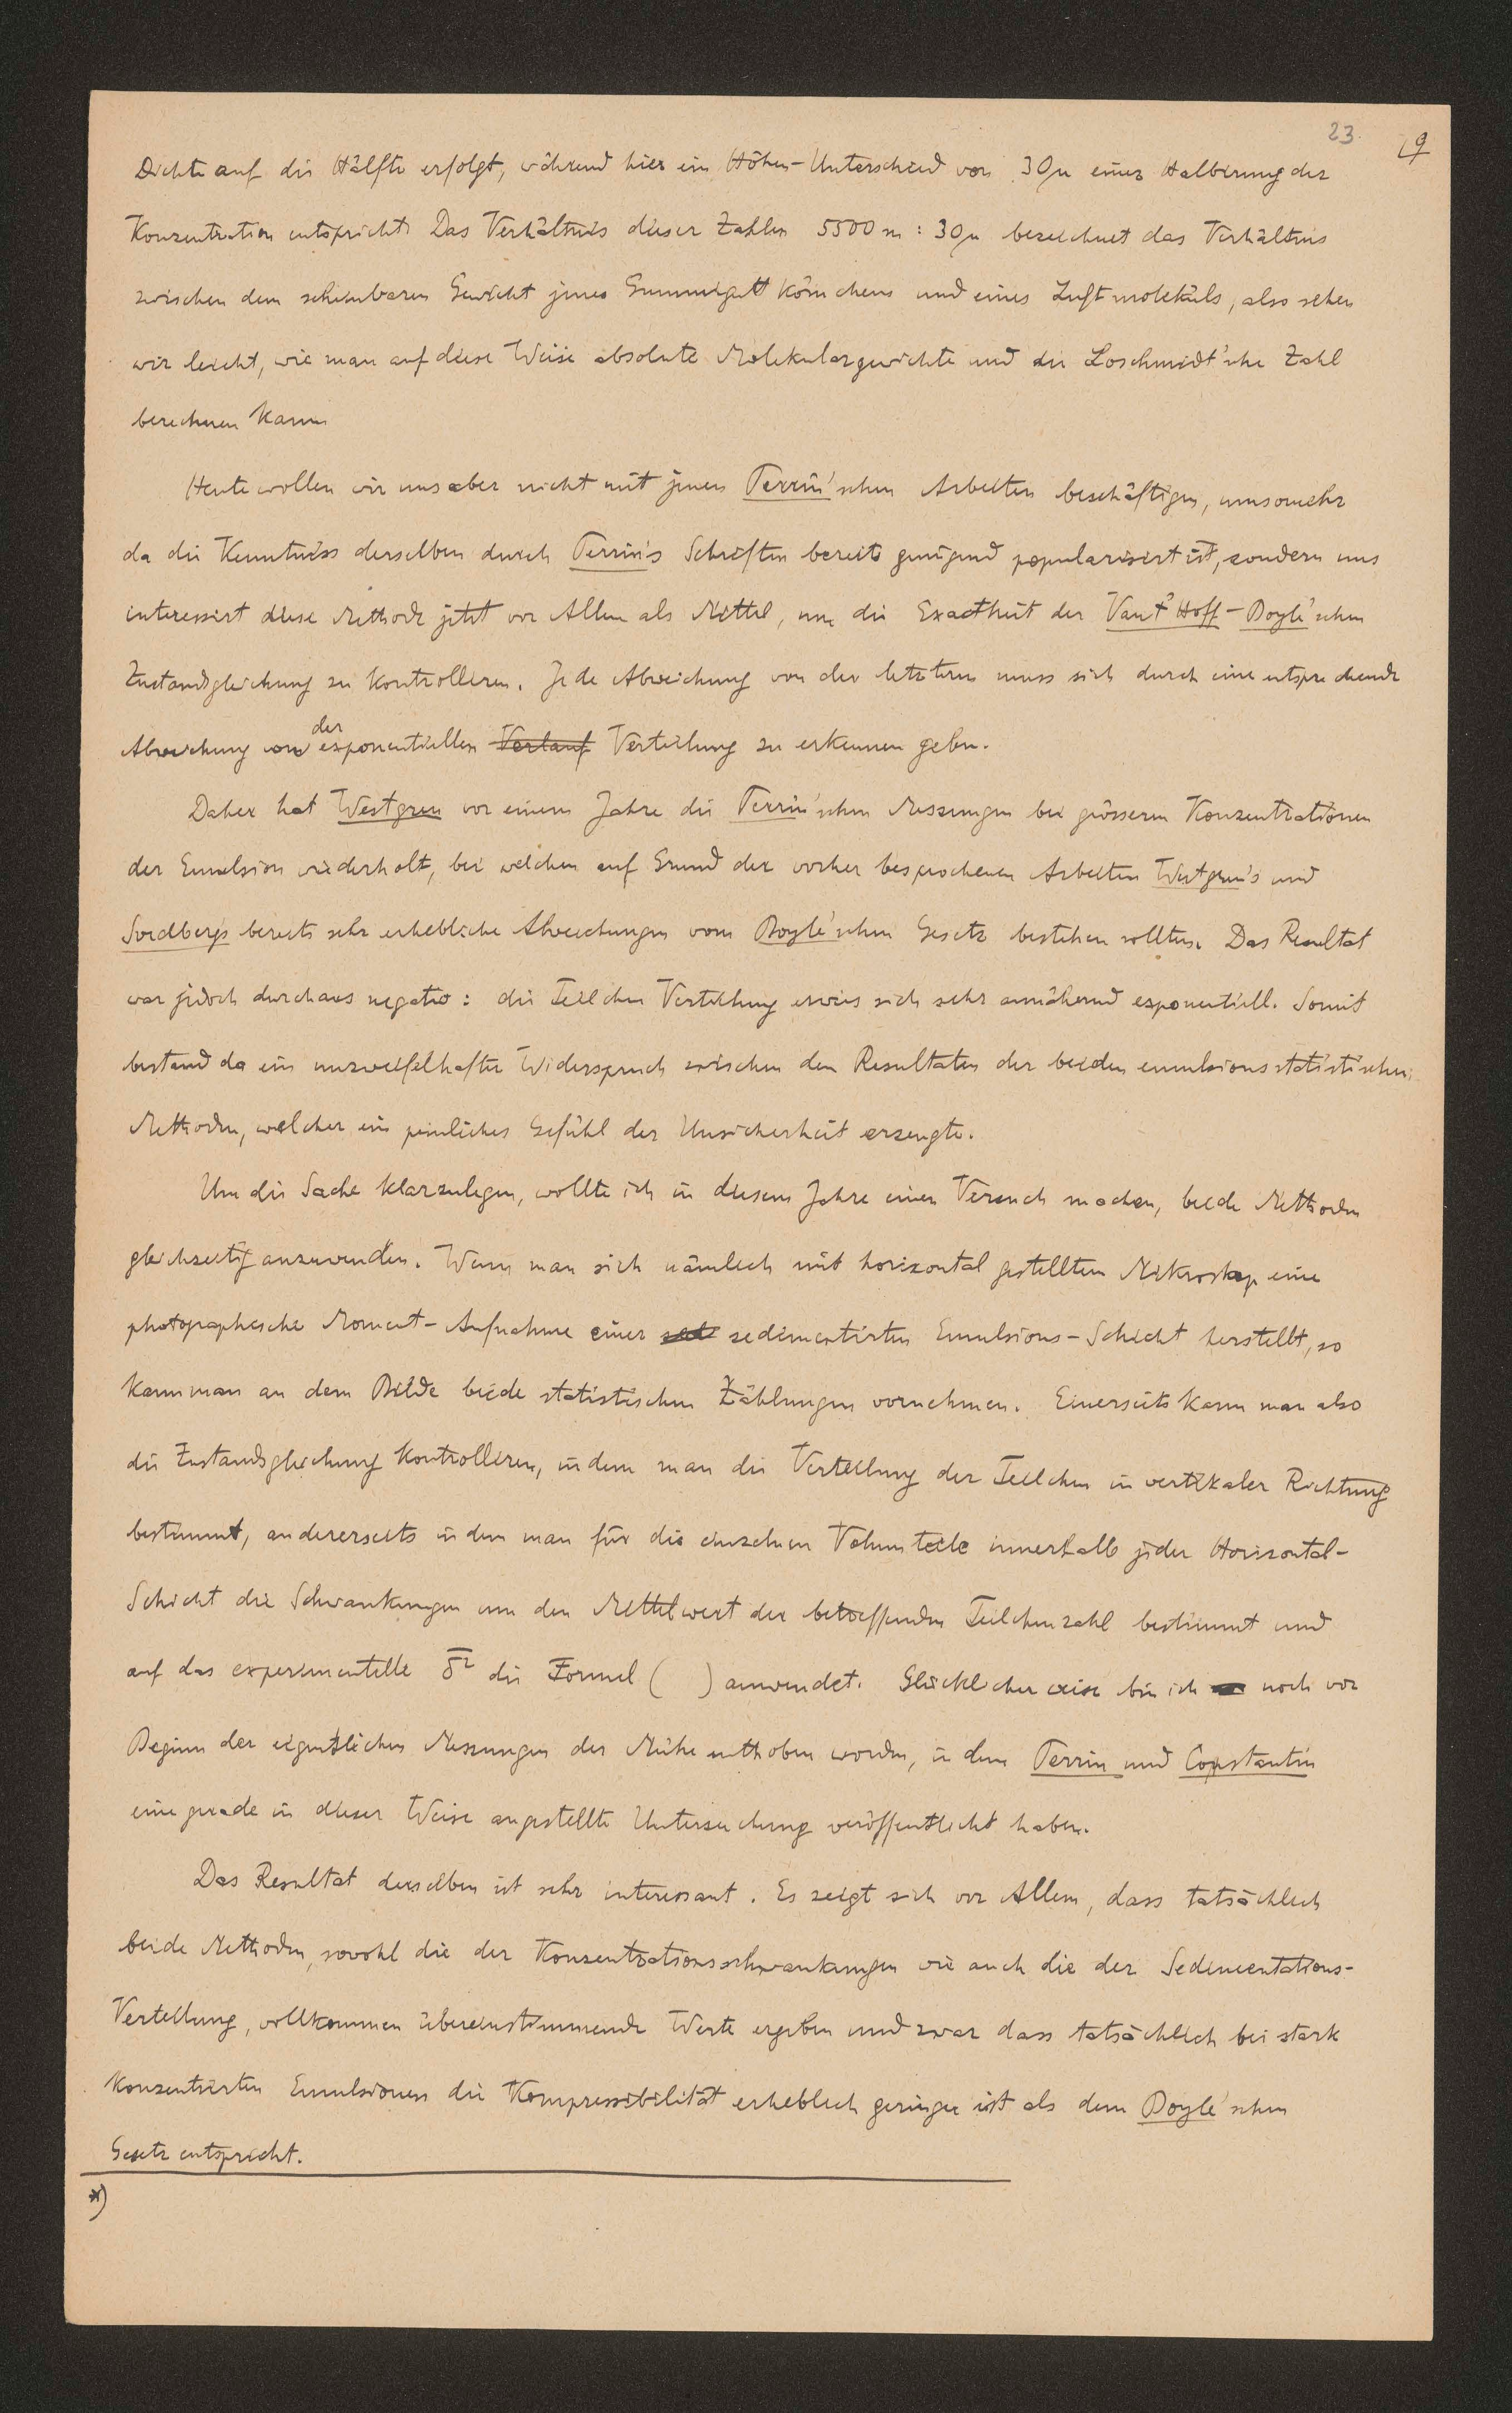 23.
19
Dichte auf die Hälfte erfolgt, während hier ein Höhen-Unterschied von 30μ einer Halbirung der
Konzentration entspricht. Das Verhältnis dieser Zahlen 5500 m : 30μ bezeichnet das Verhältnis
zwischen dem scheinbaren Gewicht jenes Gummigutt Körnchens und eines Luftmoleküls, also sehen
wir leicht, wie man auf diese Weise absolute Molekulargewichte und die Loschmidt'sche Zahl
berechnen kann.
Heute wollen wir uns aber nicht mit jenen Perrin'schen Arbeiten beschäftigen, umsomehr
da die Kenntniss derselben durch Perrin's Schriften bereits genügend popularisiert ist, sondern uns
interessirt diese Methode jetzt vor Allem als Mittel, um die Exactheit der Van't Hoff-Boyle'schen
Zustandsgleichung zu kontrolliren. Jede Abweichung von der letzteren muss sich durch eine entsprechende
Abweichung von der exponentiellen Verlauf Verteilung zu erkennen geben.
Daher hat Westgren vor einem Jahre die Perrin'schen Messungen bei grösseren Konzentrationen
der Emulsion wiederholt, bei welchen auf Grund der vorher besprochenen Arbeiten Westgren's und
Svedberg's bereits sehr erhebliche Abweichungen vom Boyle'schen Gesetz bestehen sollten. Das Resultat
war jedoch durchaus negativ: die Teilchen Verteilung erwies sich sehr annähernd exponentiell. Somit
bestand da ein unzweifelhafter Widerspruch zwischen den Resultaten der beiden emulsionsstatistischen
Methoden, welcher ein peinliches Gefühl der Unsicherheit erzeugte.
Um die Sache klarzulegen, wollte ich in diesem Jahre einen Versuch machen, beide Methoden
gleichzeitig anzuwenden. Wenn man sich nämlich mit horizontal gestelltem Mikroskop eine
photographische Moment-Aufnahme einer sedimentirten Emulsions-Schicht herstellt, so
kann man an dem Bilde beide statistischen Zählungen vornehmen. Einerseits kann man also
die Zustandsgleichung kontrolliren, indem man die Verteilung der Teilchen in vertikaler Richtung
bestimmt, andererseits indem man für die einzelnen Volumteile innerhalb jeder Horizontal-
Schicht die Schwankungen um den Mittelwert der betreffenden Teilchenzahl bestimmt und
auf das experimentelle δ̅² die Formel ( ) anwendet. Glücklicher weise bin ich noch vor
Beginn der eigentlichen Messungen der Mühe enthoben worden, indem Perrin und Constantin
eine gerade in dieser Weise angestellte Untersuchung veröffentlicht haben.
Das Resultat derselben ist sehr interessant. Es zeigt sich vor Allem, dass tatsächlich
beide Methoden, sowohl die der Konzentrationsschwankungen wie auch die der Sedimentations-
Verteilung, vollkommen übereinstimmende Werte ergeben und zwar dass tatsächlich bei stark
konzentrierten Emulsionen die Kompressibilität erheblich geringer ist als dem Boyle'schen
Gesetz entspricht.
*)